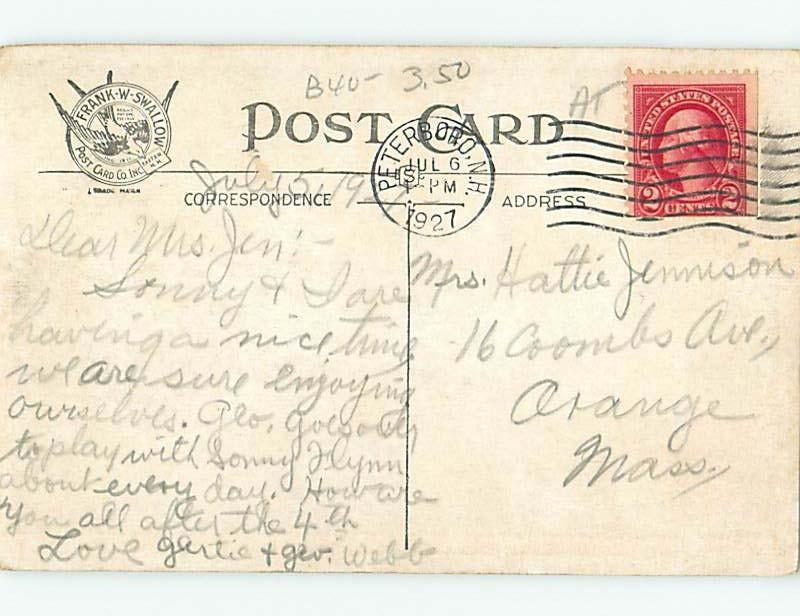 B40- 3.50
AT
FRANK-W-SWALLOW
POST CARD CO. INC.
EXETER N.H.
TRADE MARK
POST CARD
PETERBORO, N.H.
JUL 6
PM
1927
UNITED STATES POSTAGE
2 CENTS 2
July 5, 1927
CORRESPONDENCE
ADDRESS
Dear Mrs. Jen:-
Sonny & I are
having a nice time
we are sure enjoying
ourselves. Geo. goes over
to play with Sonny Flynn
about every day. How are
you all after the 4th
Love Gertie & Geo. Webb
Mrs. Hattie Jennison
16 Coombs Ave.,
Orange
Mass.